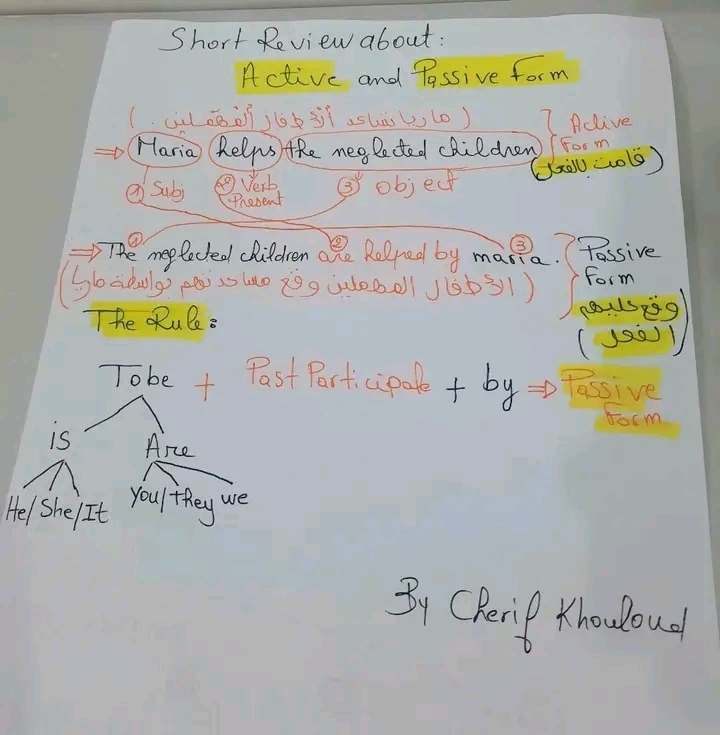 Short Review about:
Active and Passive Form
( ماريا تساعد الأطفال المهملين )
⇒ Maria helps the neglected children
Active
Form
(قامت بالفعل)
① Subj ② Verb
Present ③ Object
① ② ③
⇒ The neglected children are helped by maria.
(الأطفال المهملين وقع مساعدتهم بواسطة ماريا)
Passive
Form
(وقع عليهم
الفعل)
The Rule:
Tobe + Past Participale + by ⇒ Passive
Form
is Are
He/She/It You/they we
By Cherif Khouloud